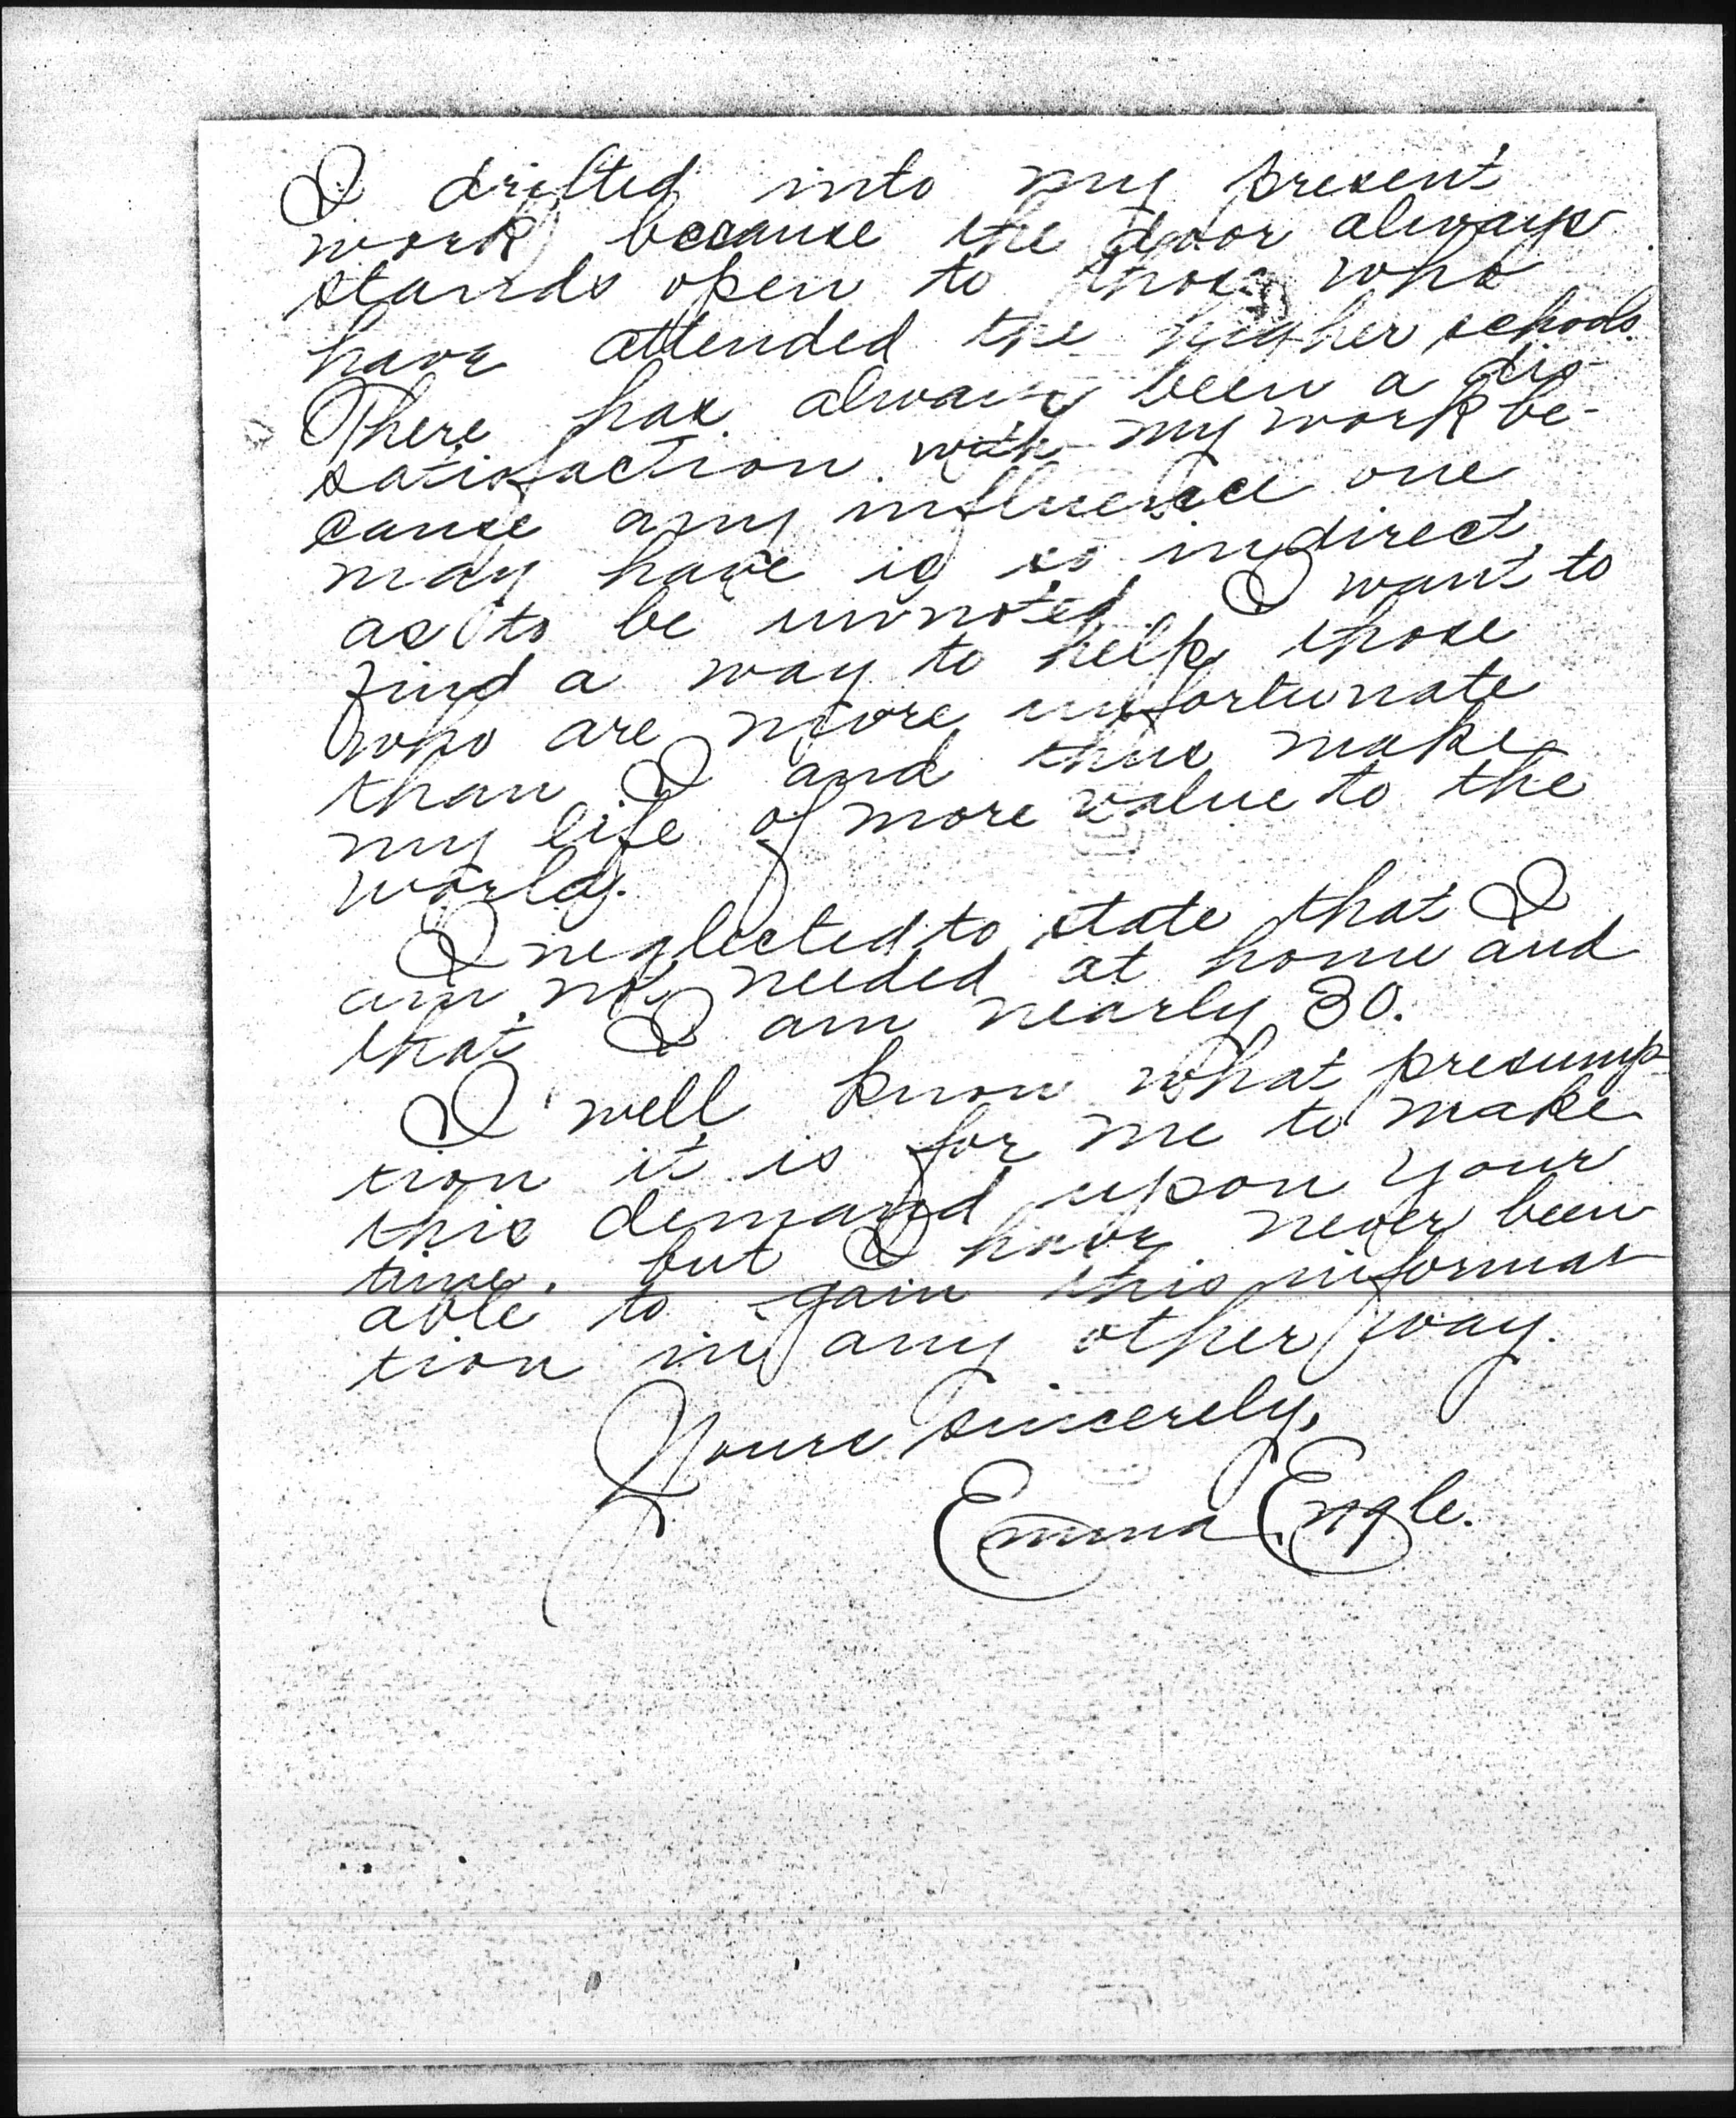 I drifted into my present
work because the door always
stands open to those who
have attended the higher schools.
There has always been a dis-
satisfaction with my work be-
cause any influence one
may have is so indirect
as to be unnoted. I want to
find a way to help those
who are more unfortunate
than I and thus make
my life of more value to the
world.
I neglected to state that I
am not needed at home and
that I am nearly 30.
I well know what presump-
tion it is for me to make
this demand upon your
time, but I have never been
able to gain this informa-
tion in any other way.
Yours sincerely,
Emma Engle.